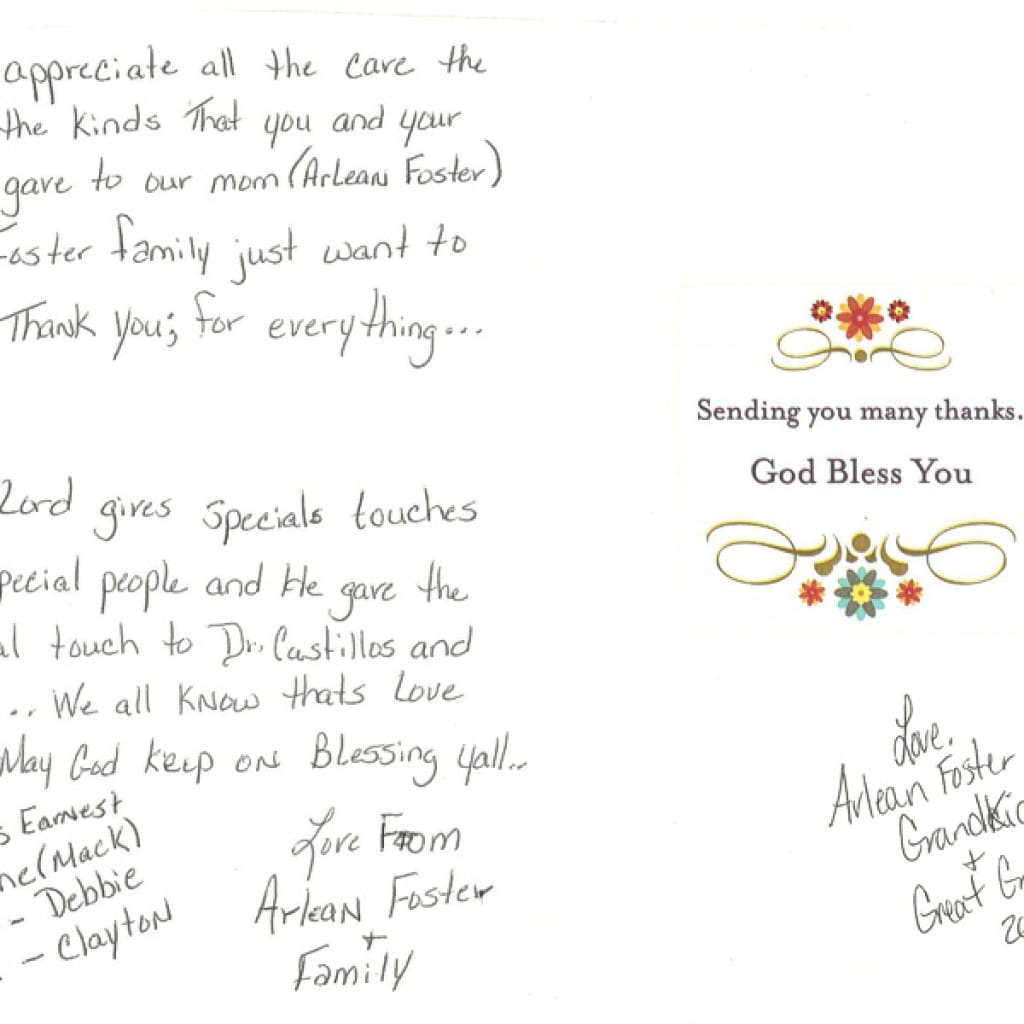 appreciate all the care the
the kinds That you and your
gave to our mom (Arlean Foster)
Foster family just want to
Thank you; for everything...
Lord gives Specials touches
pecial people and He gave the
al touch to Dr. Castillos and
... We all know thats Love
May God keep on Blessing yall...
s Earnest
ne (Mack)
- Debbie
- Clayton
Love From
Arlean Foster
+
Family
Sending you many thanks.
God Bless You
Love,
Arlean Foster
GrandKid
+
Great Gr
20